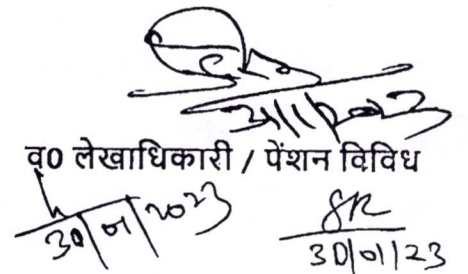 व0 लेखाधिकारी / पेंशन विविध
30/01/2023
SR
30/01/23